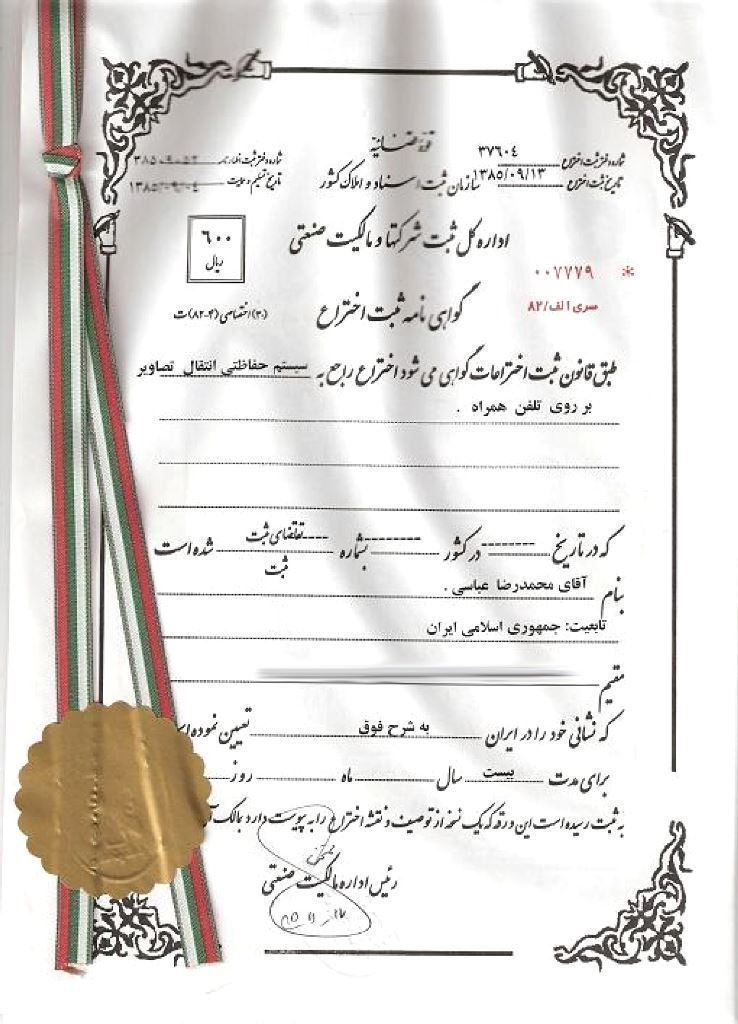 قوه قضائیه
شماره دفتر ثبت اختراع ۳۷۶۰۴
تاریخ ثبت اختراع ۱۳۸۵/۰۹/۱۳
سازمان ثبت اسناد و املاک کشور
شماره دفتر ثبت اظهارنامه
تاریخ تسلیم و ۱۳۸۵/۰۹/۰۴
اداره کل ثبت شرکتها و مالکیت صنعتی
۶۰۰
ریال
* ۰۰۷۷۷۹
سری الف/۸۲
گواهی نامه ثبت اختراع
(۳۰) اختصاصی (۴-۸۲) ت
طبق قانون ثبت اختراعات گواهی می شود اختراع راجع به سیستم حفاظتی انتقال تصاویر
بر روی تلفن همراه .
که در تاریخ -------- در کشور -------- بشماره ---- تقاضای ثبت شده است
ثبت
بنام آقای محمدرضا عباسی .
تابعیت: جمهوری اسلامی ایران
مقیم
که نشانی خود را در ایران به شرح فوق تعیین نموده
برای مدت بیست سال ماه روز
به ثبت رسیده است این ورقه که یک نسخه از توصیف و نقشه اختراع را به پیوست دارد بمالک
رئیس اداره مالکیت صنعتی